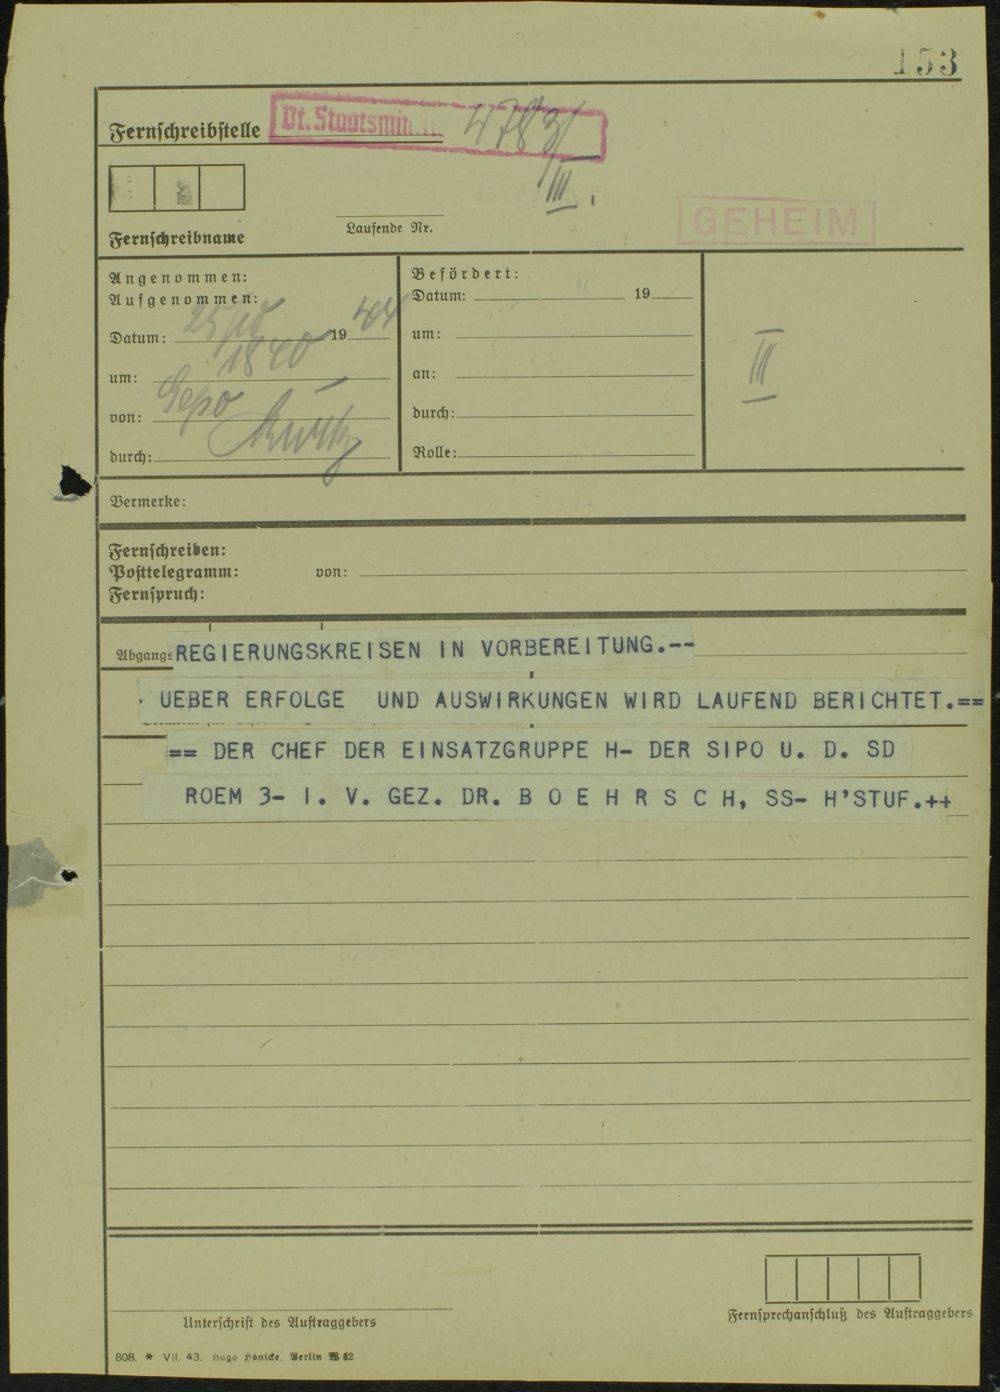 153
Fernschreibstelle
Dt. Staatsmin.
4783/
III.
GEHEIM
Laufende Nr.
Fernschreibname
Angenommen:
Aufgenommen:
Datum: 25/10 1944
um: 1840
von: Sepo
durch:
Befördert:
Datum: 19
um:
an:
durch:
Rolle:
III
Vermerke:
Fernschreiben:
Posttelegramm: von:
Fernspruch:
Abgangs
REGIERUNGSKREISEN IN VORBEREITUNG.--
UEBER ERFOLGE UND AUSWIRKUNGEN WIRD LAUFEND BERICHTET.==
== DER CHEF DER EINSATZGRUPPE H- DER SIPO U. D. SD
ROEM 3- I. V. GEZ. DR. B O E H R S C H, SS- H'STUF.++
Unterschrift des Auftraggebers
Fernsprechanschluß des Auftraggebers
808. * VII. 43. Hugo Hönicke, Berlin W 62